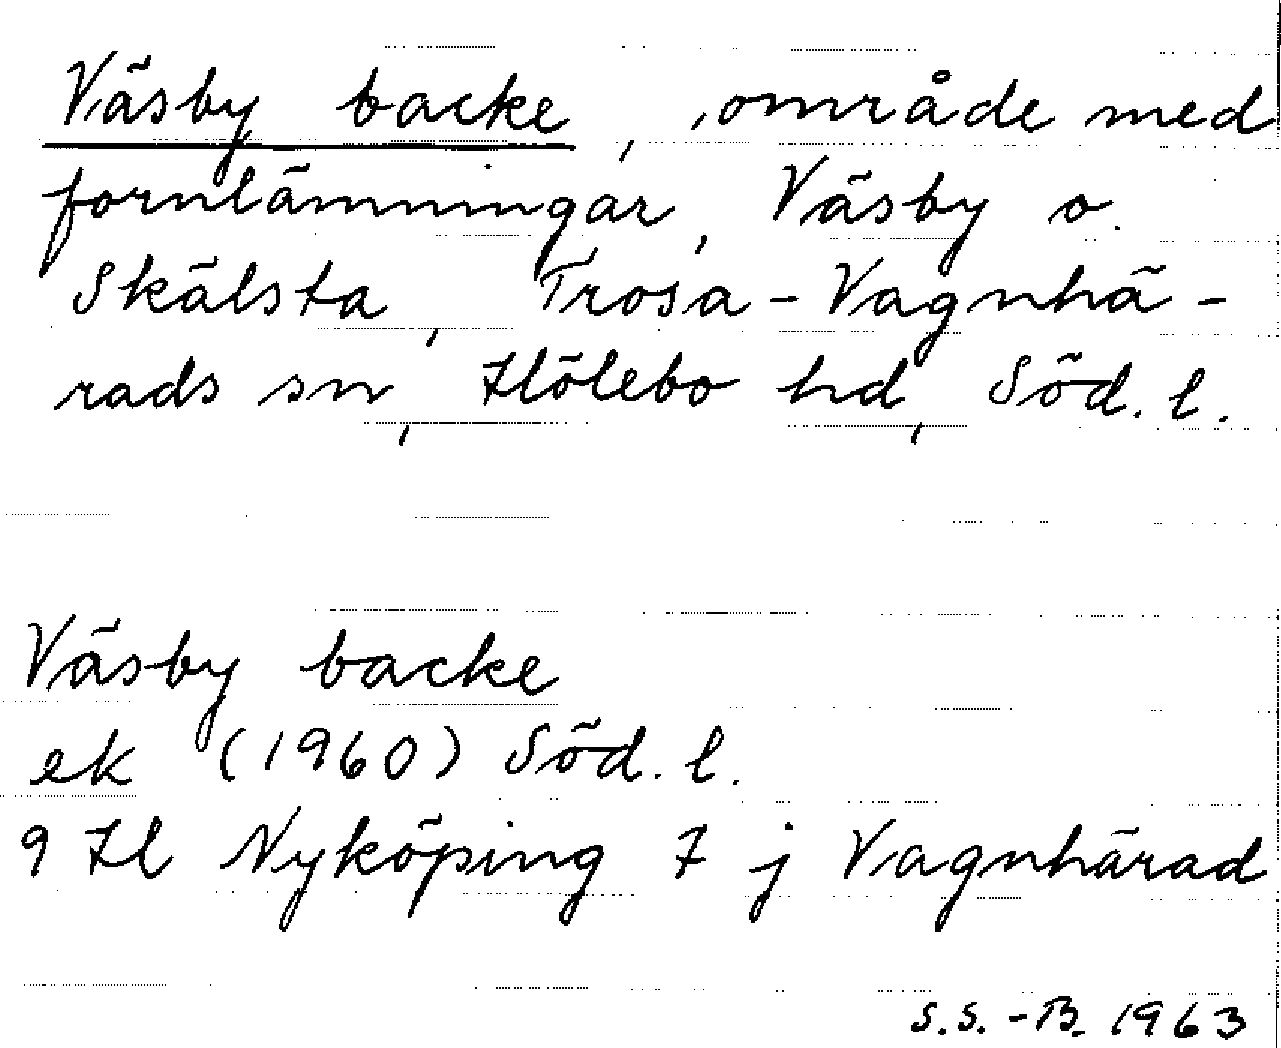 Väsby backe, område med
fornlämningar, Väsby o.
Skälsta, Trosa-Vagnhä-
rads sn, Hölebo hd, Söd. l.
Väsby backe
ek (1960) Söd. l.
9 H l Nyköping 7 j Vagnhärad
S.S.-B. 1963